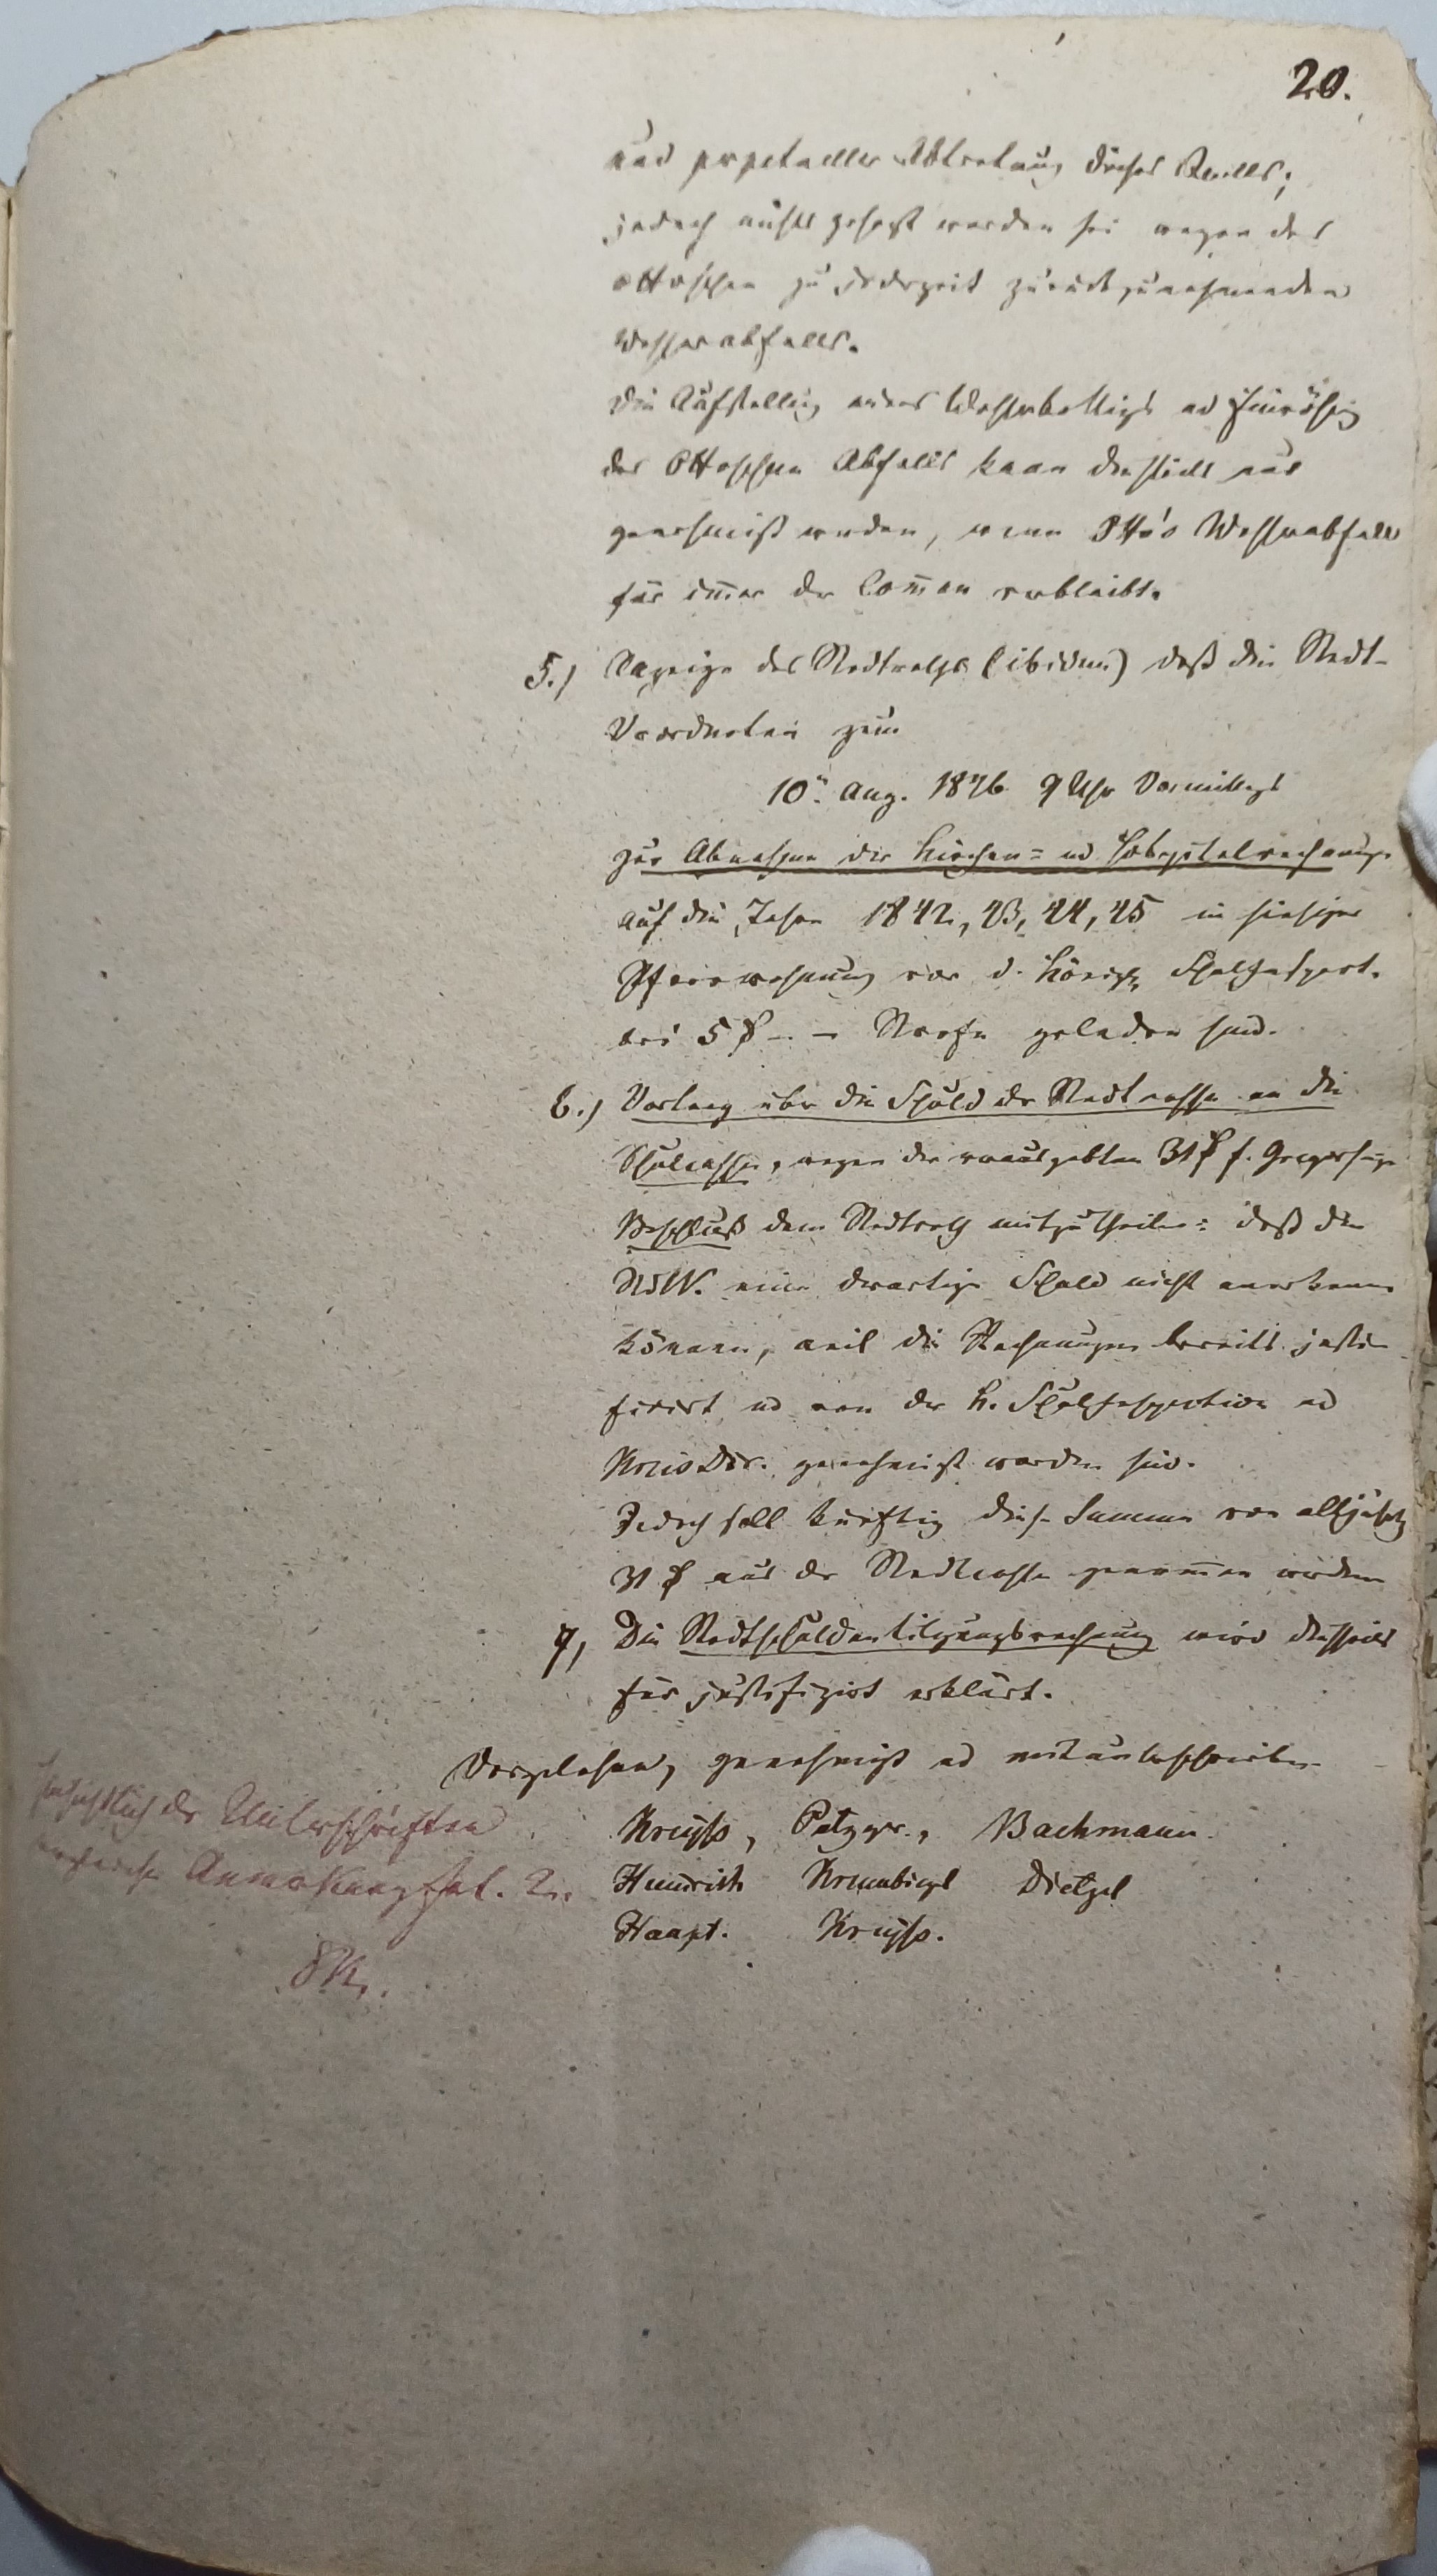 20.
und perpetueller Abtretung dieses Quells;
jedoch nichts gesagt worden sei wegen des
Ottoschen zu jederzeit zurückzunehmenden
Wasserabfalls.
Die Aufstellung eines Wasserbottigs ad
des Ottoschen Abfalls kann diesseits nur
genehmigt werden, wenn Otto's Wasserabfall
für im̅er der Com̅un verbleibt.
5.) Anzeige des Stadtraths (ibidem) daß die Stadt-
Verordneten zum
10n. Aug. 1846 9 Uhr Vormittags
zur Abnahme der Kirchen= und Hospitalrechnungen
auf die Jahre 1842, 43, 44, 45 in hiesiger
Pfarrwohnung vor d. Königl. Schulinspect.
bei 5 ₰ - - Strafe geladen sind.
6.) Vortrag über die Schuld der Stadtcasse an die
Schulcasse, wegen der verausgabten 31 ₰ f. Gregorsinge
Beschluß dem Stadtrath mitzutheilen: daß die
StdV. eine derartige Schuld nicht anerkennen
können, weil die Rechnungen bereits justi-
ficirt und von der K. Schulinspection und
KreisDir. genehmigt worden sind.
Jedoch soll künftig diese Summe von alljährl.
31 ₰ aus der Stadtcasse genom̅en werden
7, Die Stadtschuldentilgungsrechnung wird diesseits
für justifizirt erklärt.
Vorgelesen, genehmigt und mitunterschrieben
Kreyß, Petzger., Bachmann.
Heinrich Krumbiegel Dietzel
Haupt. Kreyß.
Hinsichtlich der Unterschriften
Anmerkung fol. 2.